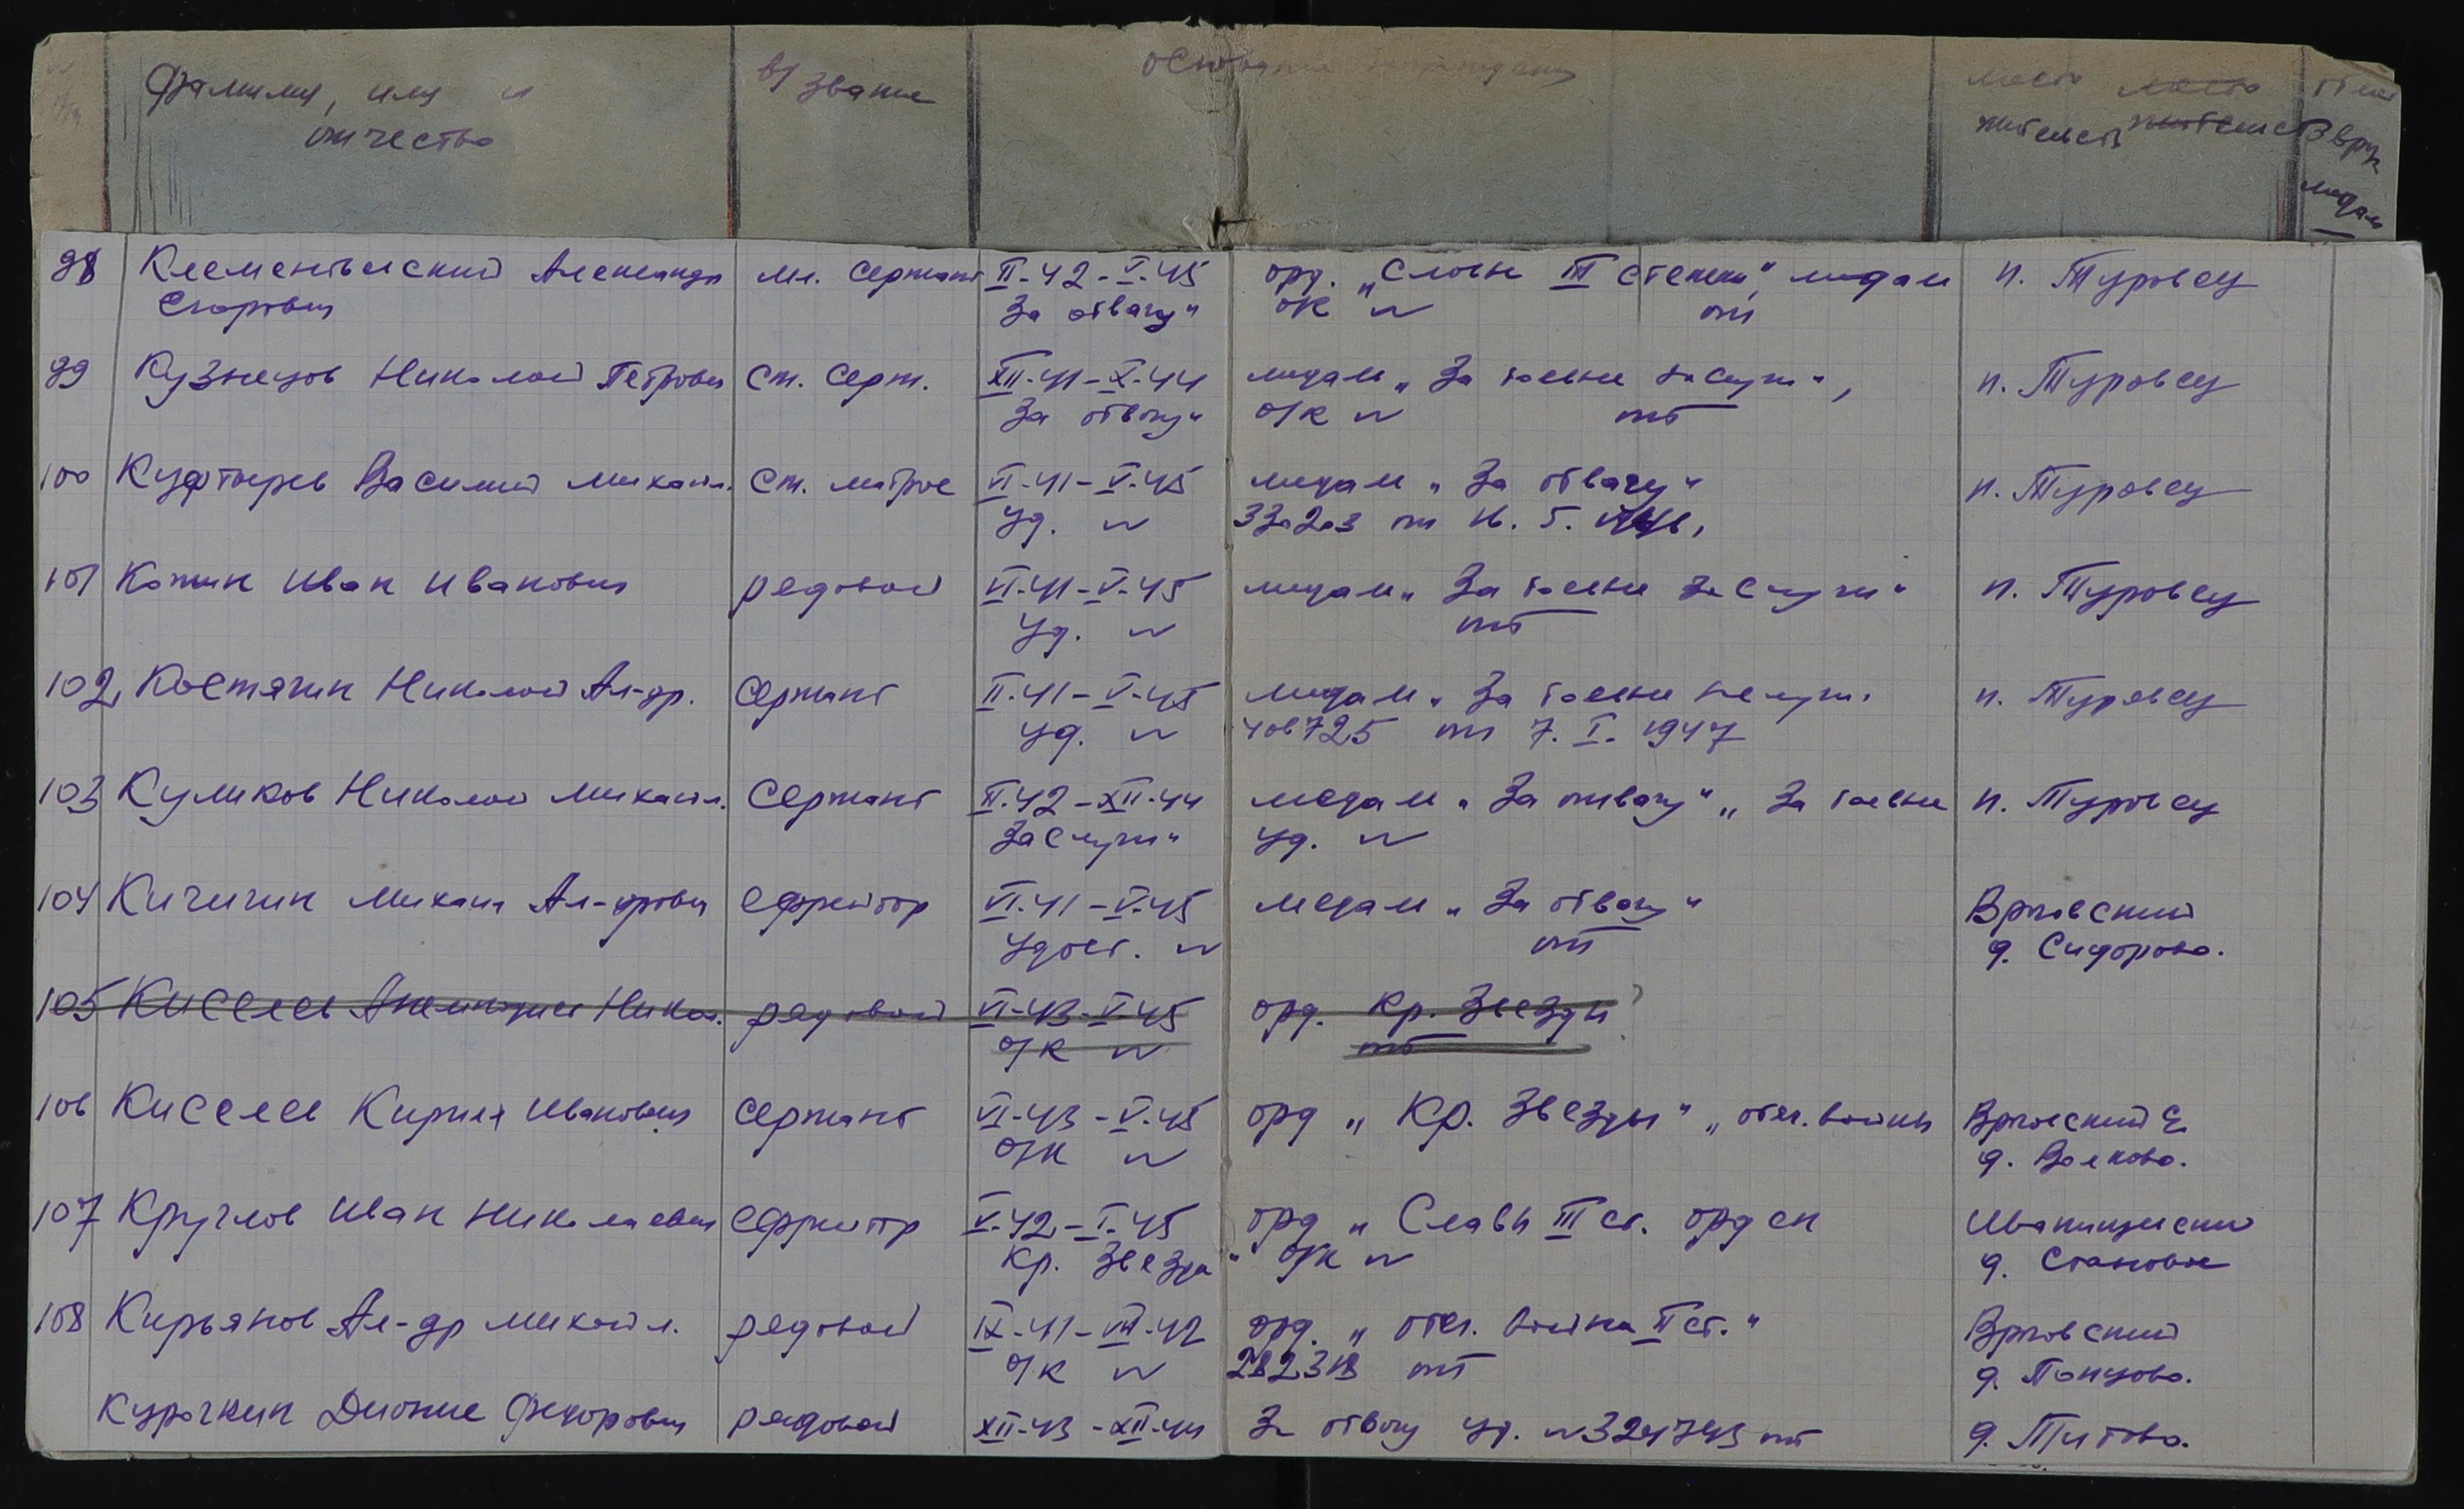 Фамилия, имя и
отчество
в/звание
место
жительств
98 Клементьевский Александр мл. сержант II-42-V-45 орд. „Славы III степени", медаль п. Туровец
Егорович За отвагу" о/к № от
99 Кузнецов Николай Петрович ст. серж. XII-41-X-44 медаль „За боевые заслуги", п. Туровец
За отвагу" о/к № от
100 Василий Михайл. ст. матрос VI-41-V-45 медаль „За отвагу" п. Туровец
уд. № от 16. 5.
101 Иван Иванович рядовой VI-41-V-45 медаль „За боевые заслуги" п. Туровец
уд. № от
102 Костягин Николай Ал-др. сержант II-41-V-45 медаль „За боевые заслуги" п. Туровец
уд. № 406725 от 7. I. 1947
103 Куликов Николай Михайл. сержант II-42-XII-44 медаль „За отвагу" „За боевые п. Туровец
заслуги" уд. №
104 Кичигин Михаил Ал-дрович ефрейтор VI-41-V-45 медаль „За отвагу"
удост. № от д. Сидорово.
105 Киселев Никол. рядовой VI-43-V-45 орд. Кр. Звезды ?
о/к № от
106 Киселев Кирилл Иванович сержант VI-43-V-45 орд „Кр. Звезды" „отеч. войны
о/к № д. Волково.
107 Круглов Иван Николаевич ефрейтор V-42-I-45 орд „Славы III ст. орден
Кр. Звезда" о/к №
108 Кирьянов Ал-др Михайл. рядовой IX-41-VIII-42 орд. „отеч. война II ст."
о/к № от
Курочкин Федорович рядовой XII-43-XII-44 За отвагу уд. №324743 от д. Титово.